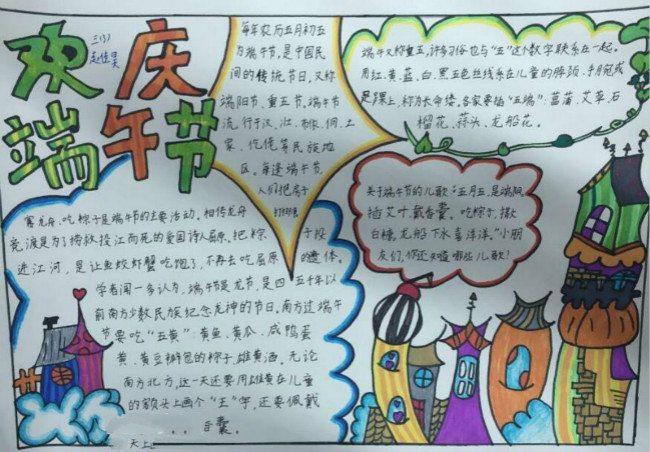 欢庆
端午节
三(1)
每年农历五月初五
为端午节，是中国民
间的传统节日，又称
端阳节、重五节。端午节
流行于汉、壮、布依、侗、土
家、仡佬等民族地
区。每逢端午节，
人们把房子
端午又称重五，许多习俗也与“五”这个数字联系在一起。
用红、黄、蓝、白、黑五色丝线系在儿童的脖颈、手腕或
足踝上，称为长命缕。各家要插“五端”：菖蒲、艾草、石
榴花、蒜头、龙船花。
关于端午节的儿歌：“五月五，是端阳。
插艾叶，戴香囊。吃粽子，撒
白糖。龙船下水喜洋洋。”小朋
友们，你还知道哪些儿歌？
赛龙舟、吃粽子是端午节的主要活动。相传龙舟
竞渡是为了捞救投江而死的爱国诗人屈原。把粽子投
进江河，是让鱼蛟虾蟹吃饱了，不再去吃屈原的遗体。
学者闻一多认为，端午节是龙节，是四五千年以
前南方少数民族纪念龙神的节日。南方过端午
节要吃“五黄”：黄鱼、黄瓜、咸鸭蛋
黄、黄豆瓣包的粽子、雄黄酒。无论
南方北方，这一天还要用雄黄在儿童
的额头上画个“王”字，还要佩戴
香囊。
天上